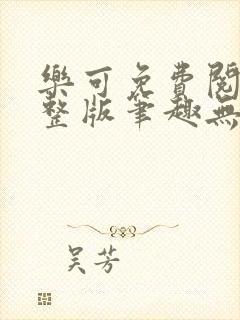 樂可免費閱
整版筆趣無
吴芳